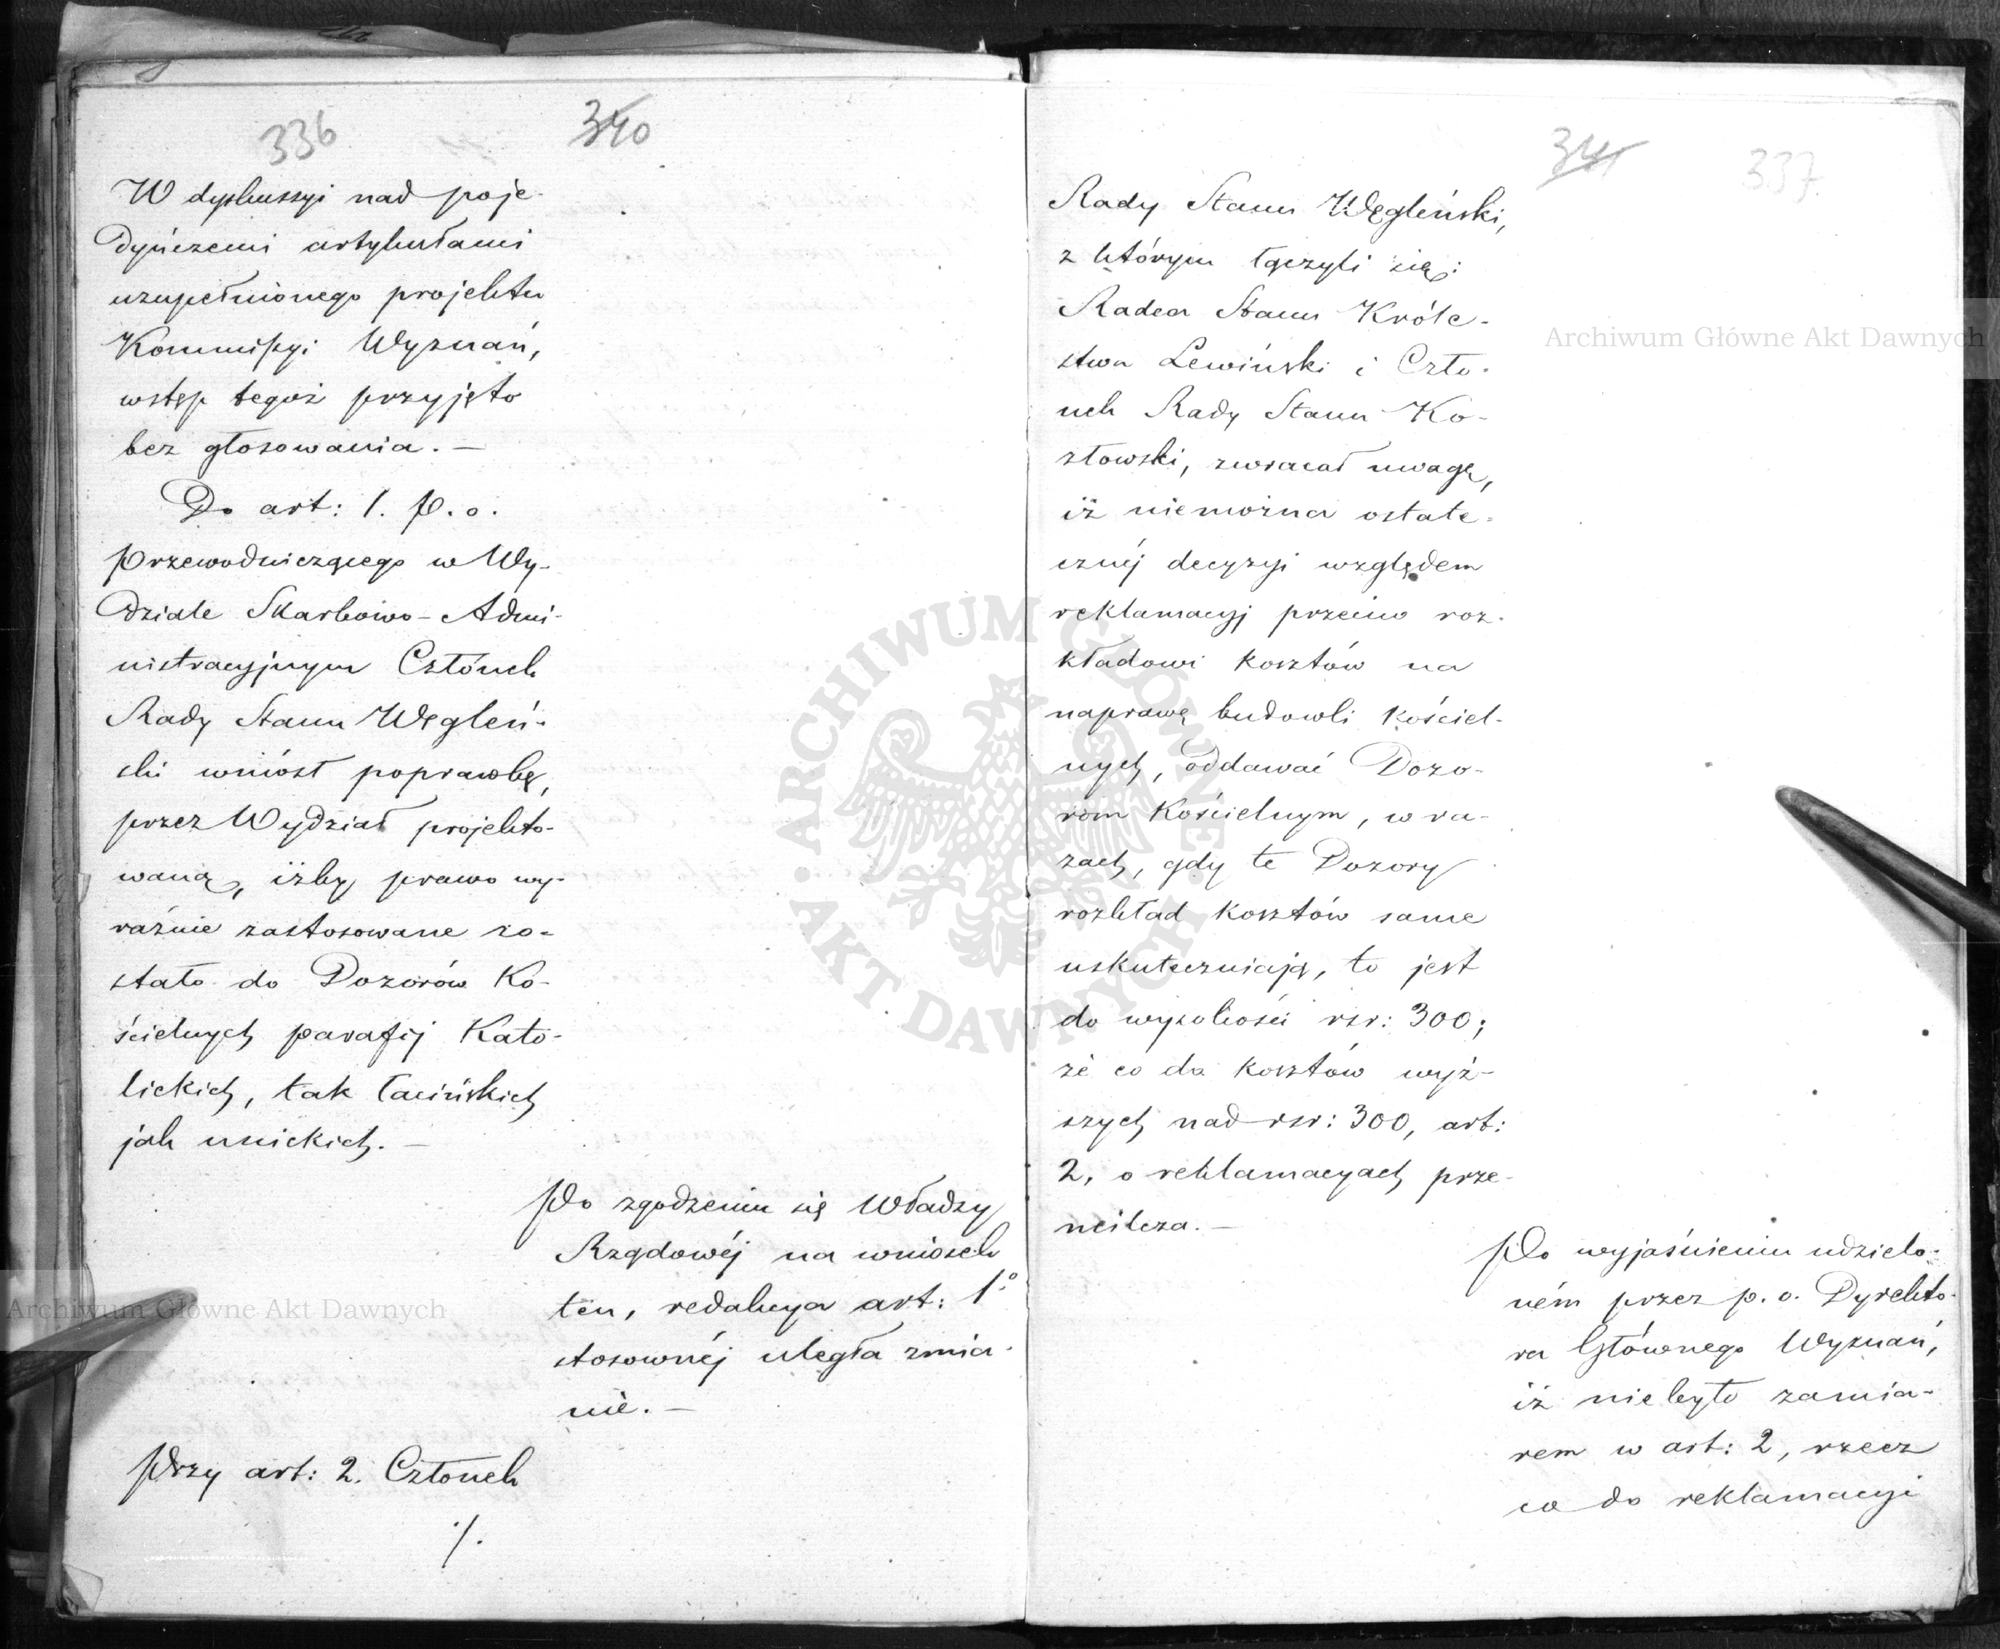 336
340
W dyskussyi nad poje-
dyńczemi artykułami
uzupełnionego projektu
Kommissyi Wyznań,
wstęp tegoż przyjęto
bez głosowania. —
Do art: 1. p. o.
Przewodniczącego w Wy-
dziale Skarbowo-Admi-
nistracyjnym Członek
Rady Stanu Węgleń-
ski wniósł poprawkę,
przez Wydział projekto-
waną, iżby prawo wy-
raźnie zastosowane zo-
stało do Dozorów Ko-
ścielnych parafij Kato-
lickich, tak łacińskich
jak unickich. —
Po zgodzeniu się Władzy
Rządowéj na wniosek
ten, redakcya art: 1º
stosownéj uległa zmia-
nie. —
Przy art: 2. Członek
./.
341
337
Rady Stanu Węgleński,
z którym łączyli się:
Radca Stanu Króle-
stwa Lewiński i Czło-
nek Rady Stanu Ko-
złowski, zwracał uwagę,
iż niemożna ostate-
cznéj decyzyi względem
reklamacyj przeciw roz-
kładowi kosztów na
naprawę budowli kościel-
nych, oddawać Dozo-
rom Kościelnym, w ra-
zach, gdy te Dozory
rozkład kosztów same
uskuteczniają, to jest
do wysokości rsr: 300;
że co do kosztów wyż-
szych nad rsr: 300, art:
2, o reklamacyach prze-
milcza. —
Po wyjaśnieniu udzielo-
ném przez p. o. Dyrekto-
ra Głównego Wyznań,
iż niebyło zamia-
rem w art: 2, rzecz
co do reklamacyi
Archiwum Główne Akt Dawnych
Archiwum Główne Akt Dawnych
ARCHIWUM GŁÓWNE · AKT DAWNYCH ·